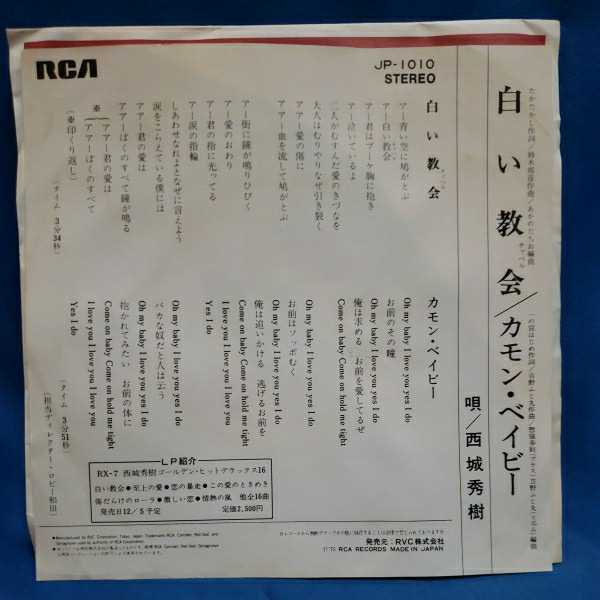 RCA
JP-1010
STEREO
白い教会/カモン・ベイビー
チャペル
唄/西城秀樹
白い教会
チャペル
アー青い空に鳩がとぶ
アー白い教会
アー君はブーケ胸に抱き
アー泣いているよ
二人がむすんだ愛のきづなを
大人はむりやりなぜ引き裂く
アアー愛の傷に
アアー血を流して鳩がとぶ
アー街に鐘が鳴りひびく
アー愛のおわり
アー君の指に光ってる
アー涙の指輪
しあわせなれよとなぜに言えよう
涙をこらえている僕には
アアー君の愛は
アアーぼくのすべて鐘が鳴る
※アアー君の愛は
アアーぼくのすべて
(※印くり返し)
(タイム 3分34秒)
カモン・ベイビー
Oh my baby I love you yes I do
お前のその瞳
Oh my baby I love you yes I do
俺は求める お前を愛してるぜ
Come on baby Come on hold me tight
Oh my baby I love you yes I do
お前はソッポむく
Oh my baby I love you yes I do
俺は追いかける 逃げるお前を
Come on baby Come on hold me tight
I love you I love you I love you
Yes I do
Oh my baby I love you yes I do
バカな奴だと人は云う
Oh my baby I love you yes I do
抱かれてみたい お前の体に
Come on baby Come on hold me tight
I love you I love you I love you
Yes I do
(タイム 3分51秒)
(担当ディレクター・ロビー和田)
LP紹介
RX-7 西城秀樹ゴールデン・ヒットデラックス16
白い教会●至上の愛●恋の暴走●この愛のときめき
傷だらけのローラ●激しい恋●情熱の嵐 他全16曲
発売日12/5予定 定価2,500円
発売元:RVC株式会社
RCA RECORDS MADE IN JAPAN